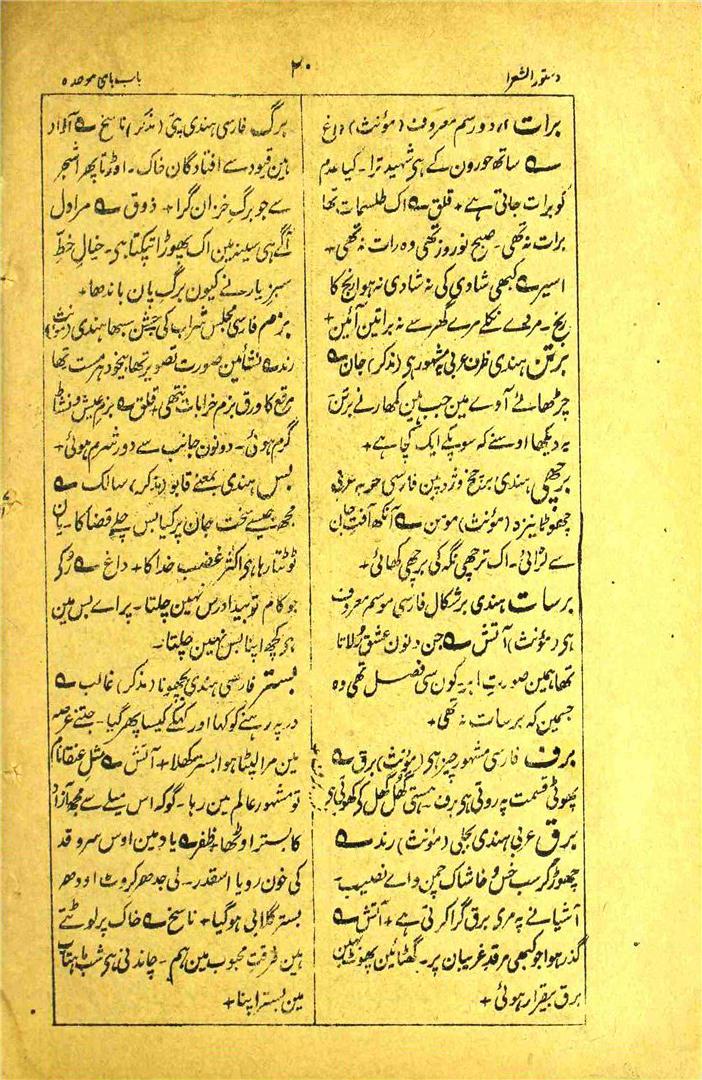 دستور الشعرا
۲۰
باب بائ موحدہ
برات ۱) دور سم معروف (مؤنث) داغ
ے ساتھ حورون کے ہی شہید ترا ۔ کیا عدم
کو برات جاتی ہے + قلق ے اک طلسمات تھا
برات نہ تھی ۔ صبح نوروز تھی وہ رات نہ تھی +
اسیر ے کبھی شادی کی نہ شادی نہ ہوا رنج کا
رنج ۔ مردے نکلے مرے گھر سے نہ براتین آئین +
برتن ہندی ظرف عربی مشہور ہی (مذکر) جان ے
چڑھائے آوے مین جب ہین کمھار نے برتن
یہ دیکھا اوسنے کہ سو پکے ایک کچا ہے +
برچھی ہندی فارسی حربہ عربی
چھوٹا نیزہ (مؤنث) مومن ے آنکھ آفت جان
سے لڑائی ۔ اک ترچھی نگہ کی برچھی کھائی +
برسات ہندی برشکال فارسی موسم معروف
ہی (مؤنث) آتش ے جن دنون عشق رُلاتا
تھا ہمین صورت ابر ۔ کون سی فصل تھی وہ
جسمین کہ برسات نہ تھی +
برف فارسی مشہور چیز ہی (مؤنث) برق ے
پھوٹی قسمت پہ روتی ہی برف ۔ ہستی گھُل گھُل کے کھوتی ہو
برق عربی ہندی بجلی (مؤنث) رند ے
چھوڑ کر سب خس و خاشاک چمن واے نصیب ۔
آشیانے پہ مری برق گرا کرتی ہے + آتش ے
گذر ہوا جو کبھی مرقد غریبان پر ۔ گھٹائین پھوٹ بہین
برق بیقرار ہوئی +
برگ فارسی ہندی پتی (مذکر) ناسخ ے آزاد
ہین قیود سے افتادگان خاک ۔ اوڑتا پھر اشجر
سے جو برگ خزان گرا + ذوق ے مرا دل
آگے ہی سینہ مین اک پھوڑا ٹپکتا ہی ۔ خیال خطِّ
سبز یار نے کیون برگ پان باندھا +
بزم فارسی مجلس شراب کی جشن سبھا ہندی (مؤنث)
رند ے نشا مین صورت تصویر تھا بیخود ہر مست تھا
مرقع کا ورق بزم خرابات نتھی + قلق ے بزم عیش و نشاط
گرم ہوئی ۔ دونون جانب سے دور شرم ہوئی +
بس ہندی بمعنے قابو (مذکر) سالک ے
مجھ جیسے سخت جان پر کیا بس چلے قضا کا ۔ یان
ٹوٹتا رہا ہی اکثر غضب خدا کا + داغ ے رُکے
جو کام تو بیدادرس نہین چلتا ۔ پراے بس مین
ہی کچھ اپنا بس نہین چلتا ۔
بستر فارسی ہندی بچھونا (مذکر) غالب ے
در پہ رہنے کو کہا اور کہکے کیسا پھر گیا ۔ جتنے عرصہ
مین مرا لپٹا ہوا بستر کھلا + آتش ے مثل عنقا نام
تو مشہور عالم مین رہا ۔ گو کہ اس میلے سے مجھ آزاد
کا بستر اوٹھا + ظفر ے یاد مین اوس سرو قد
کی خون رویا اسقدر ۔ لی جدھر کروٹ اودھر
بستر گلابی ہو گیا + ناسخ ے خاک پر لوٹتے
ہین فرقت محبوب مین ہم ۔ چاندنی ہی شب مہتاب
مین بستر اپنا +